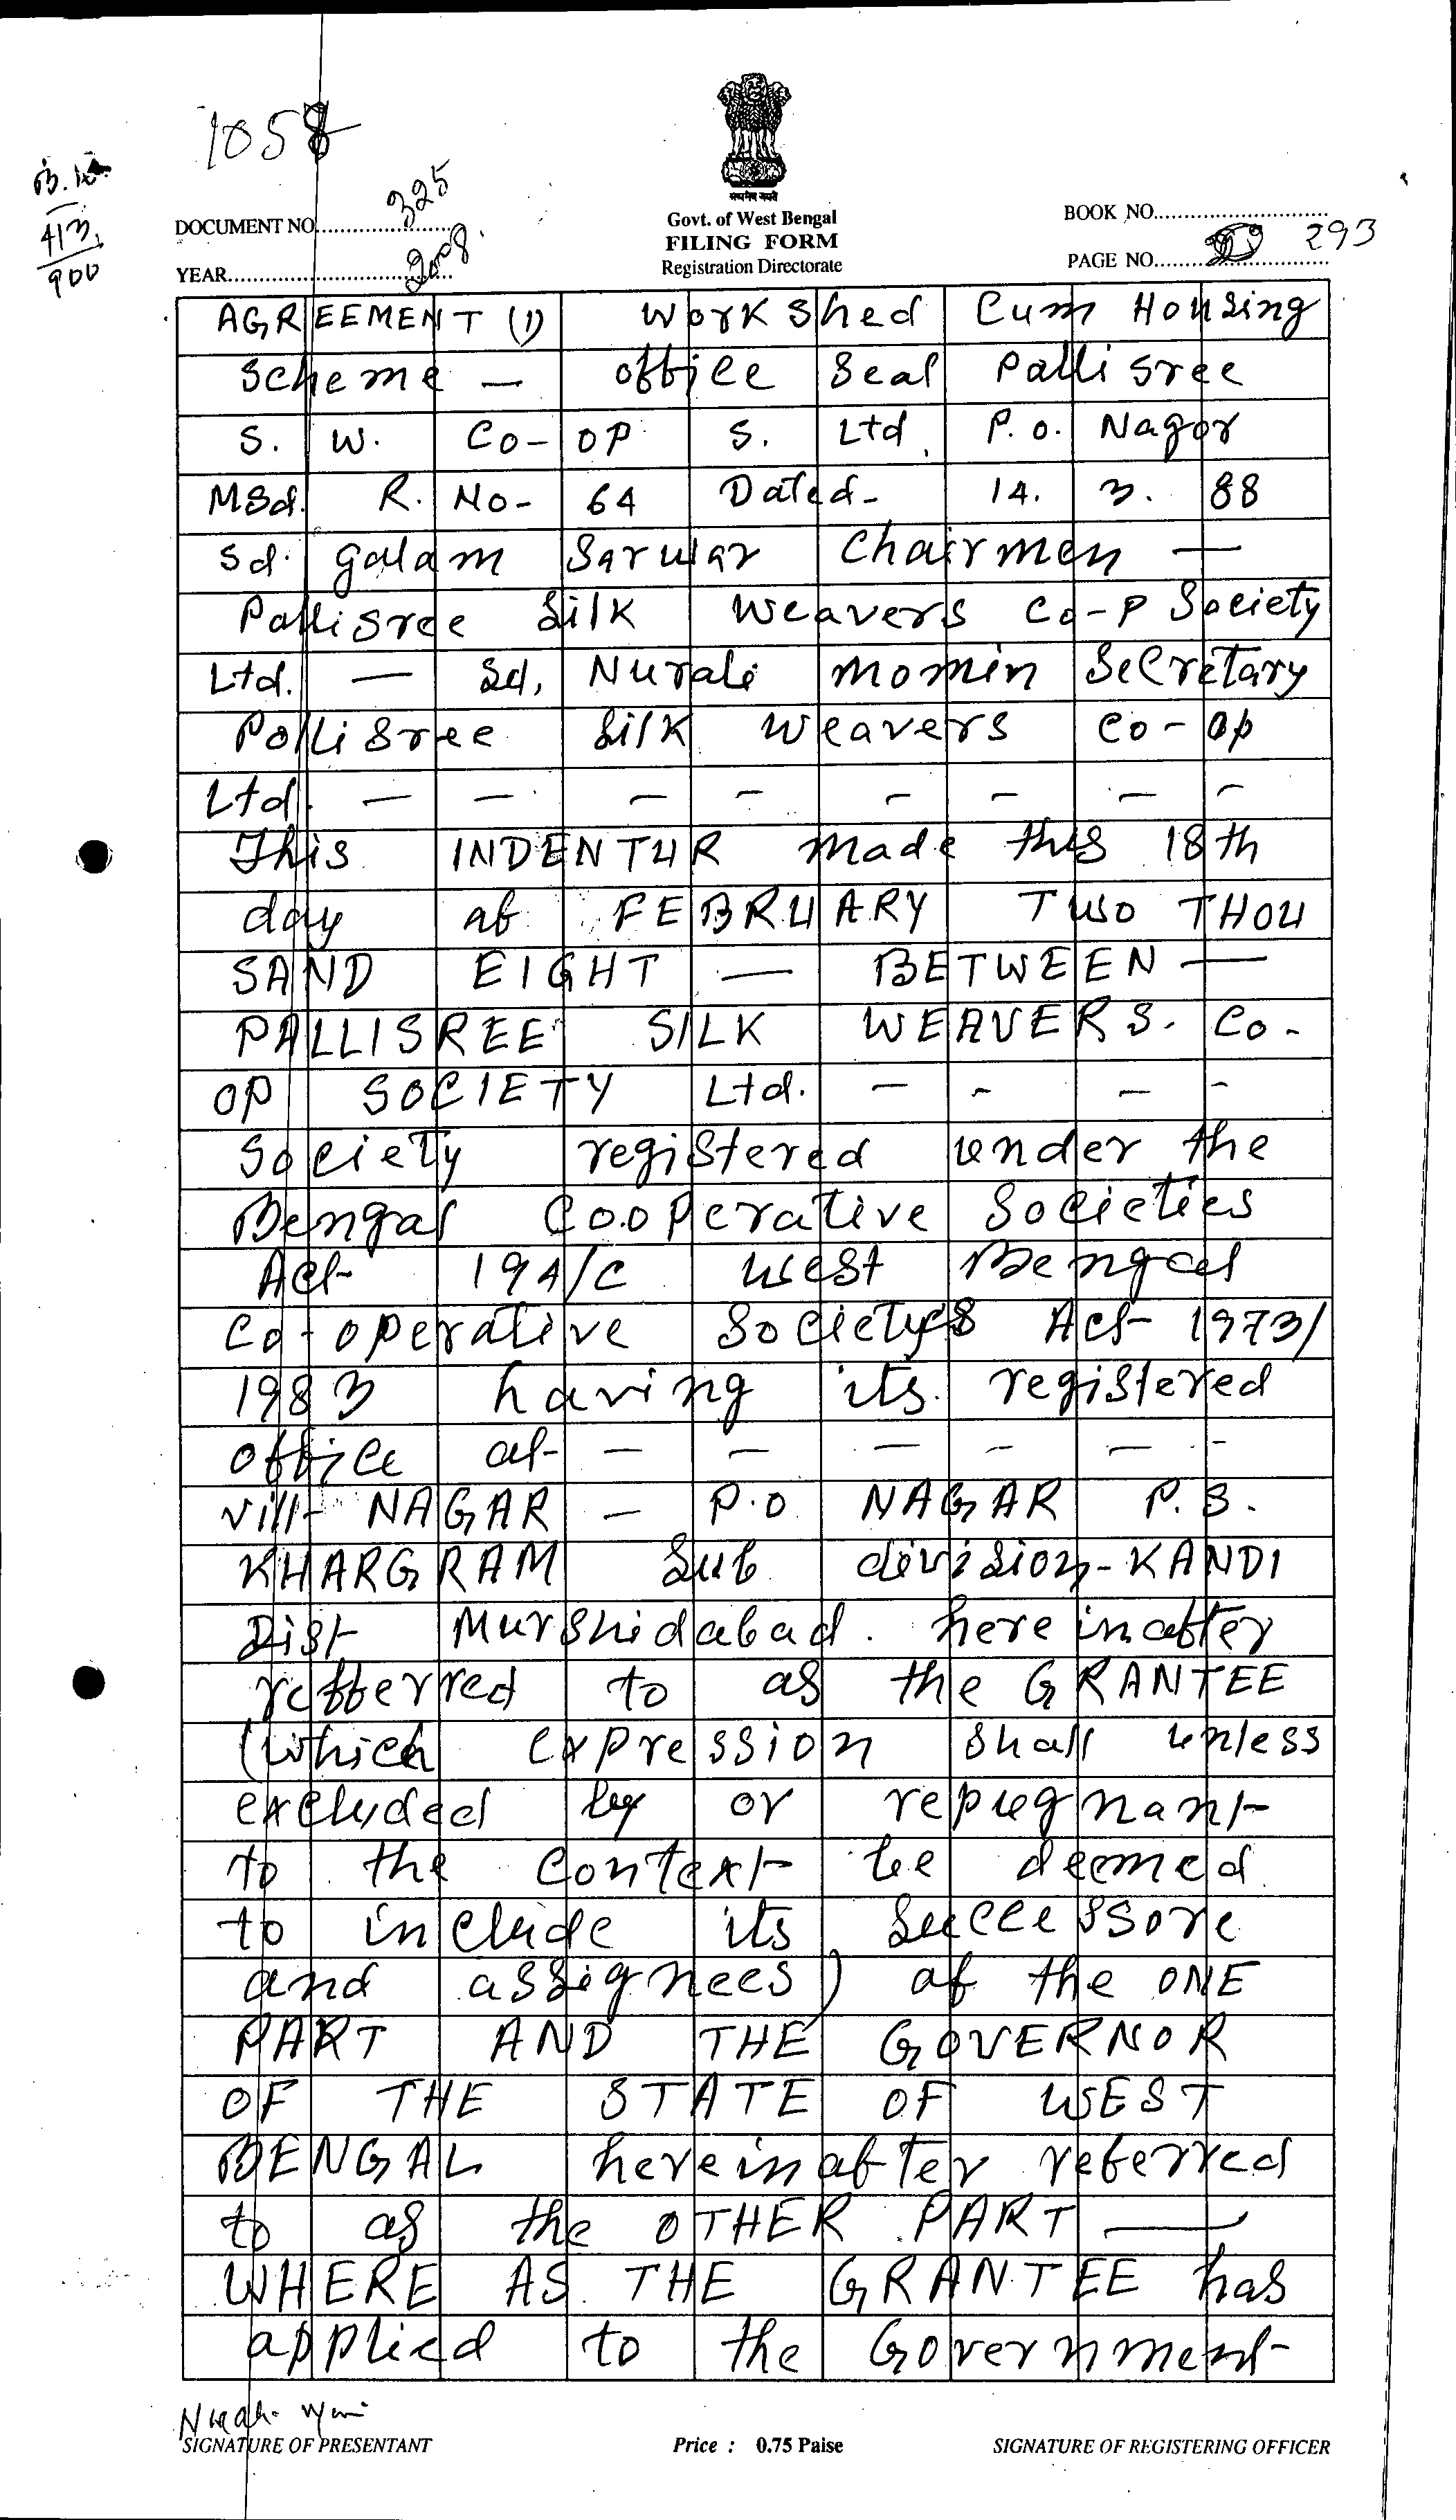 1058
413
900
सत्यमेव जयते
DOCUMENT NO. 325
YEAR 2008.
Govt. of West Bengal
FILING FORM
Registration Directorate
BOOK NO.
PAGE NO. 293
AGREEMENT (1) Work Shed Cum Housing
Scheme — office Seal Palli Sree
S. W. Co-OP S. Ltd. P.O. Nagor
MSd. R. No- 64 Dated- 14. 3. 88
Sd. Golam Sarwar Chairmen —
Palli Sree Silk Weavers Co-P Society
Ltd. — Sd, Nurali Momin Secretary
Palli Sree Silk Weavers Co-Op
Ltd. — — — — — — — —
This INDENTUR made this 18th
day of FEBRUARY TWO THOU
SAND EIGHT — BETWEEN —
PALLISREE SILK WEAVERS. Co-
OP SOCIETY Ltd. — - — -
Society registered under the
Bengal Cooperative Societies
Act- 194/C West Bengal
Co-operative Societys Act- 1973/
1983 having its registered
office at- — — — — — -
Vill- NAGAR — P.O NAGAR P.S.
KHARGRAM Sub division-KANDI
Dist- Murshidabad. hereinafter
refferred to as the GRANTEE
(which expression shall unless
excluded by or repugnant
to the context be deemed
to include its successore
and assignees) of the ONE
PART AND THE GOVERNOR
OF THE STATE OF WEST
BENGAL hereinafter referred
to as the OTHER PART —
WHERE AS THE GRANTEE has
applied to the Government
SIGNATURE OF PRESENTANT
Price : 0.75 Paise
SIGNATURE OF REGISTERING OFFICER